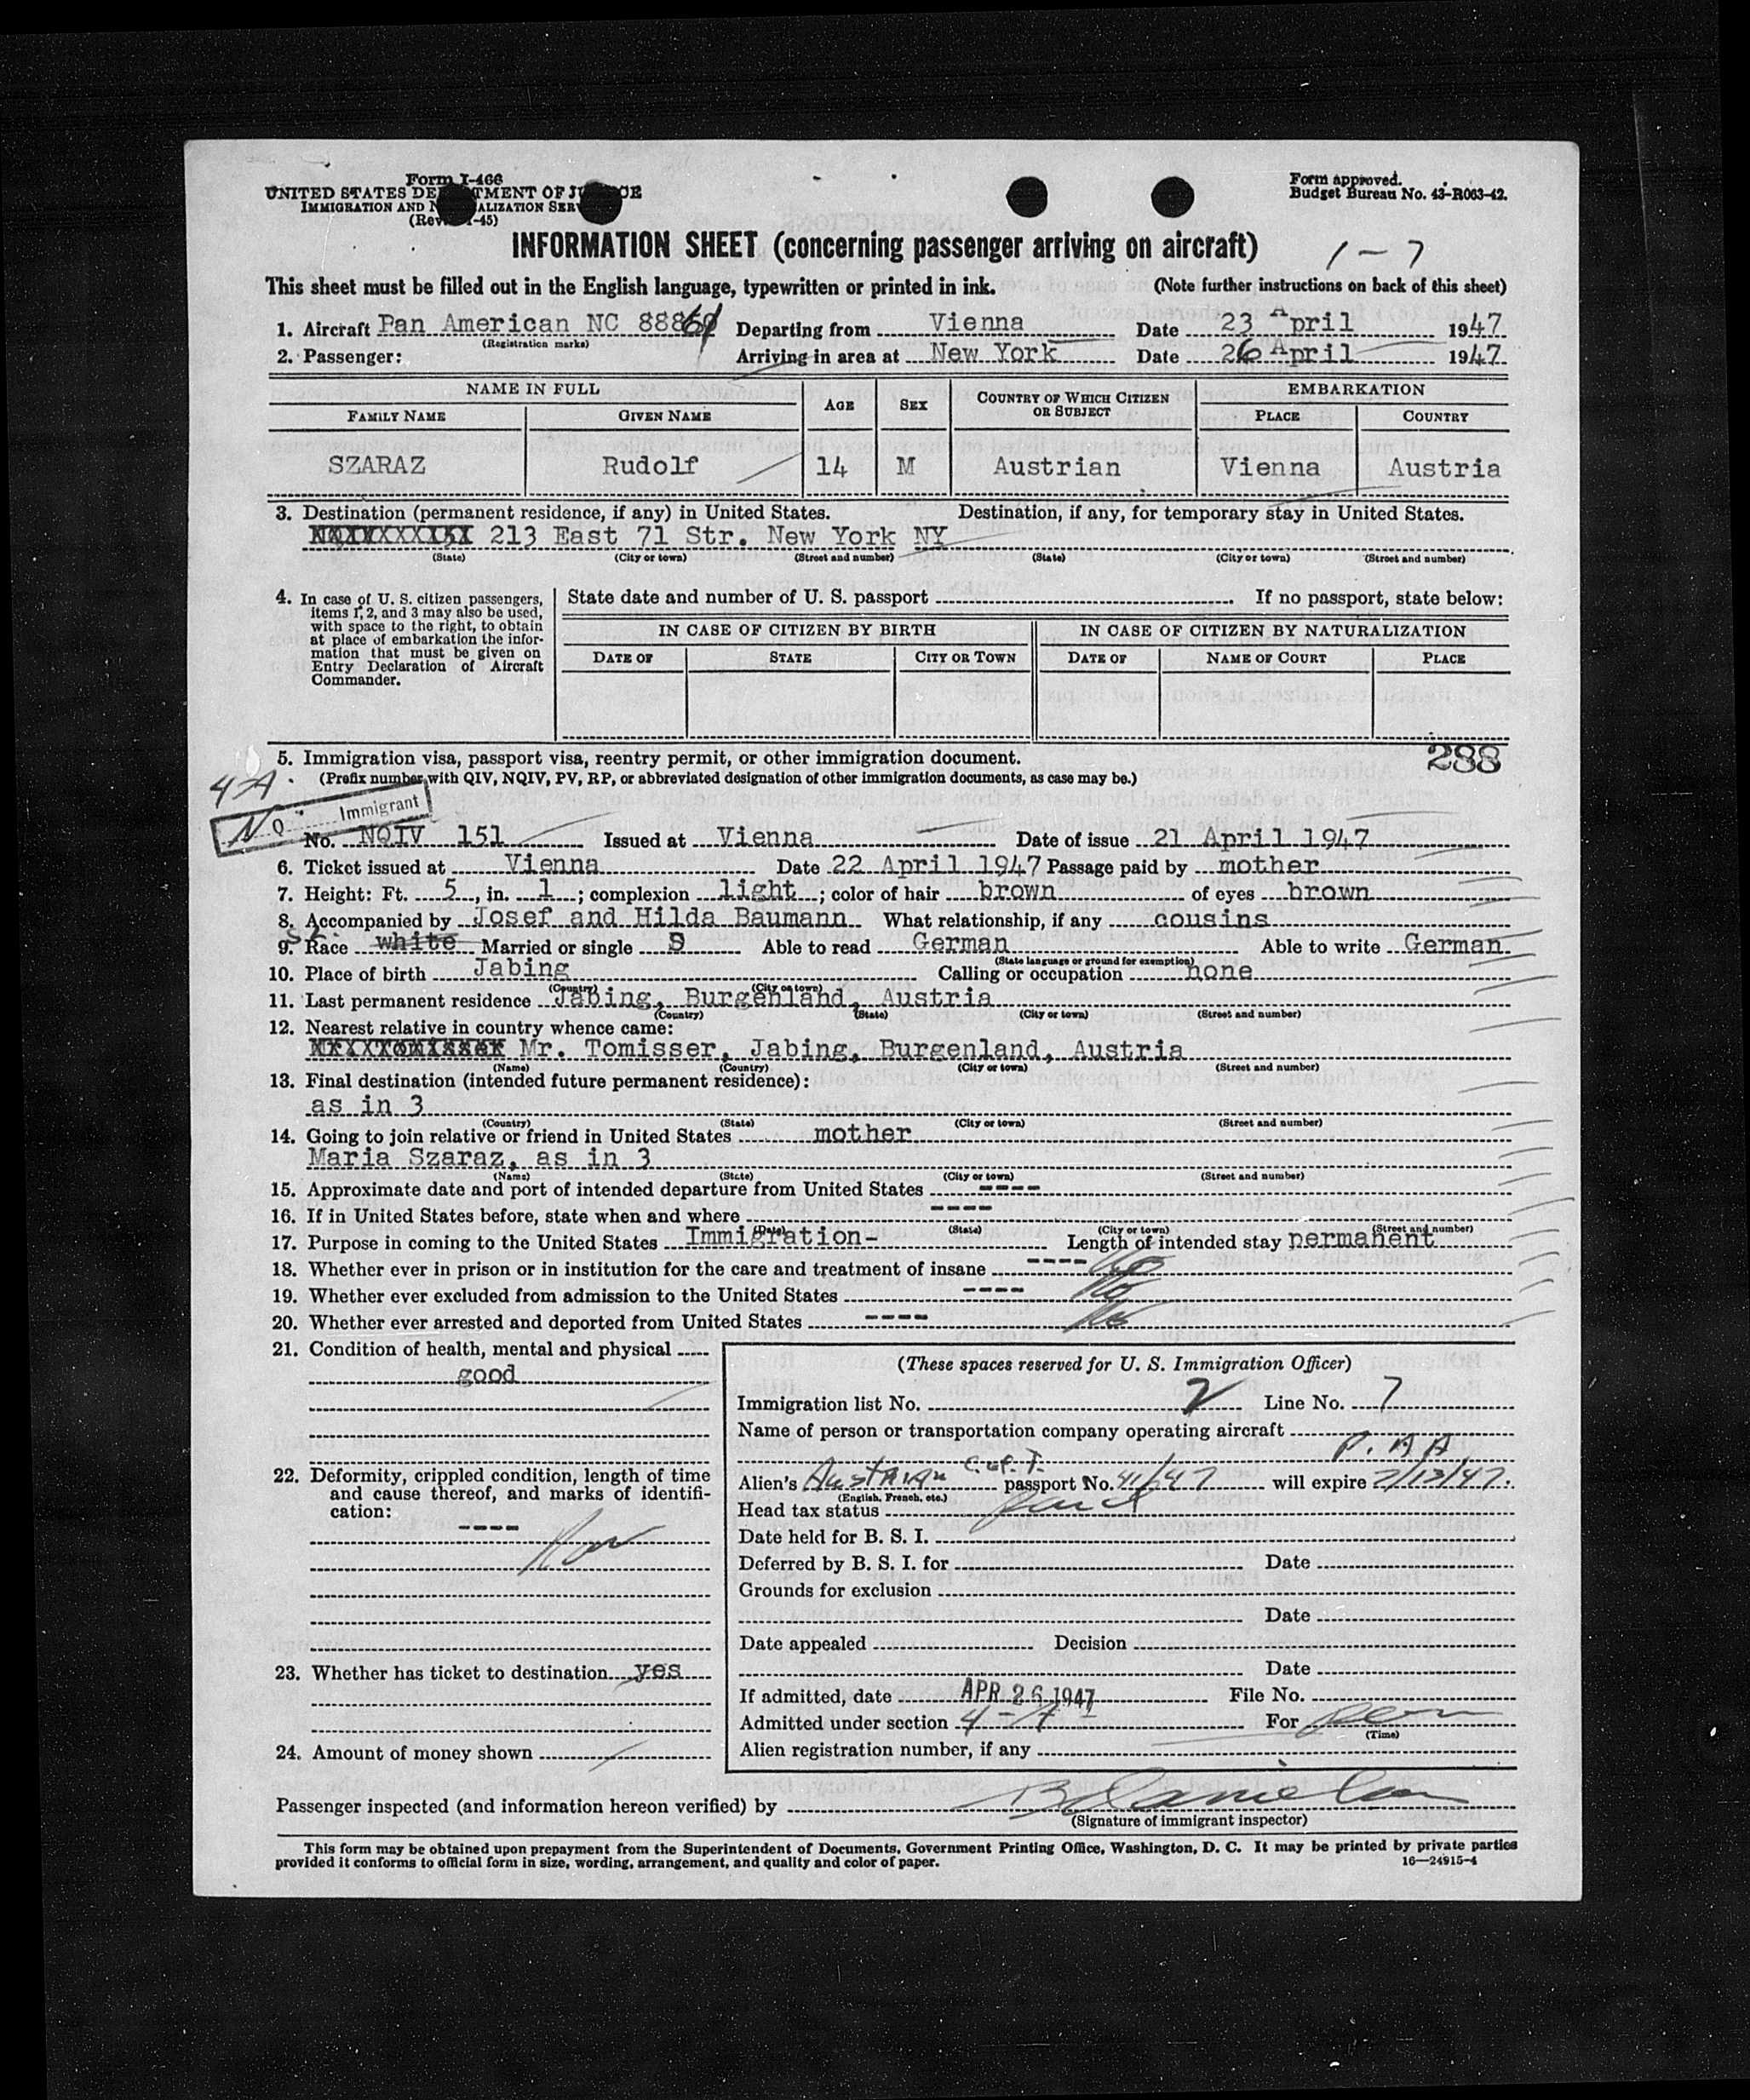 Form I-466
UNITED STATES DEPARTMENT OF JUSTICE
IMMIGRATION AND NATURALIZATION SERVICE
(Rev. -45)
Form approved.
Budget Bureau No. 43-R063-42.
INFORMATION SHEET (concerning passenger arriving on aircraft)
1-7
This sheet must be filled out in the English language, typewritten or printed in ink. (Note further instructions on back of this sheet)
1. Aircraft Pan American NC 88861 Departing from Vienna Date 23 April 1947
(Registration marks)
2. Passenger: Arriving in area at New York Date 26 April 1947
NAME IN FULL AGE SEX COUNTRY OF WHICH CITIZEN OR SUBJECT EMBARKATION
FAMILY NAME GIVEN NAME PLACE COUNTRY
SZARAZ Rudolf 14 M Austrian Vienna Austria
3. Destination (permanent residence, if any) in United States. Destination, if any, for temporary stay in United States.
213 East 71 Str. New York NY
(State) (City or town) (Street and number) (State) (City or town) (Street and number)
4. In case of U. S. citizen passengers, items 1, 2, and 3 may also be used, with space to the right, to obtain at place of embarkation the information that must be given on Entry Declaration of Aircraft Commander.
State date and number of U. S. passport . If no passport, state below:
IN CASE OF CITIZEN BY BIRTH IN CASE OF CITIZEN BY NATURALIZATION
DATE OF STATE CITY OR TOWN DATE OF NAME OF COURT PLACE
5. Immigration visa, passport visa, reentry permit, or other immigration document. 288
(Prefix number with QIV, NQIV, PV, RP, or abbreviated designation of other immigration documents, as case may be.)
4A
N Q Immigrant
No. NQIV 151 Issued at Vienna Date of issue 21 April 1947
6. Ticket issued at Vienna Date 22 April 1947 Passage paid by mother
7. Height: Ft. 5, in. 1; complexion light; color of hair brown of eyes brown
8. Accompanied by Josef and Hilda Baumann What relationship, if any cousins
9. Race white Married or single S Able to read German Able to write German
(State language or ground for exemption)
10. Place of birth Jabing Calling or occupation none
(Country) (City or town)
11. Last permanent residence Jabing, Burgenland, Austria
(Country) (State) (City or town) (Street and number)
12. Nearest relative in country whence came:
Mr. Tomisser, Jabing, Burgenland, Austria
(Name) (Country) (City or town) (Street and number)
13. Final destination (intended future permanent residence):
as in 3
(Country) (State) (City or town) (Street and number)
14. Going to join relative or friend in United States mother
Maria Szaraz, as in 3
(Name) (State) (City or town) (Street and number)
15. Approximate date and port of intended departure from United States ----
16. If in United States before, state when and where ----
(Date) (State) (City or town) (Street and number)
17. Purpose in coming to the United States Immigration- Length of intended stay permanent
18. Whether ever in prison or in institution for the care and treatment of insane ---- No
19. Whether ever excluded from admission to the United States ---- No
20. Whether ever arrested and deported from United States ---- No
21. Condition of health, mental and physical
good
22. Deformity, crippled condition, length of time and cause thereof, and marks of identification:
----
23. Whether has ticket to destination yes
24. Amount of money shown
(These spaces reserved for U. S. Immigration Officer)
Immigration list No. 2 Line No. 7
Name of person or transportation company operating aircraft
P. A A
Alien's Austrian passport No. 41/147 will expire 7/13/47.
(English, French, etc.)
Head tax status paid
Date held for B. S. I.
Deferred by B. S. I. for Date
Grounds for exclusion
Date
Date appealed Decision
Date
If admitted, date APR 26 1947 File No.
Admitted under section 4-A For Perm
(Time)
Alien registration number, if any
Passenger inspected (and information hereon verified) by
(Signature of immigrant inspector)
This form may be obtained upon prepayment from the Superintendent of Documents, Government Printing Office, Washington, D. C. It may be printed by private parties
provided it conforms to official form in size, wording, arrangement, and quality and color of paper. 16—24915-4